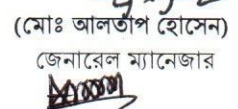 (মোঃ আলতাপ হোসেন)
জেনারেল ম্যানেজার